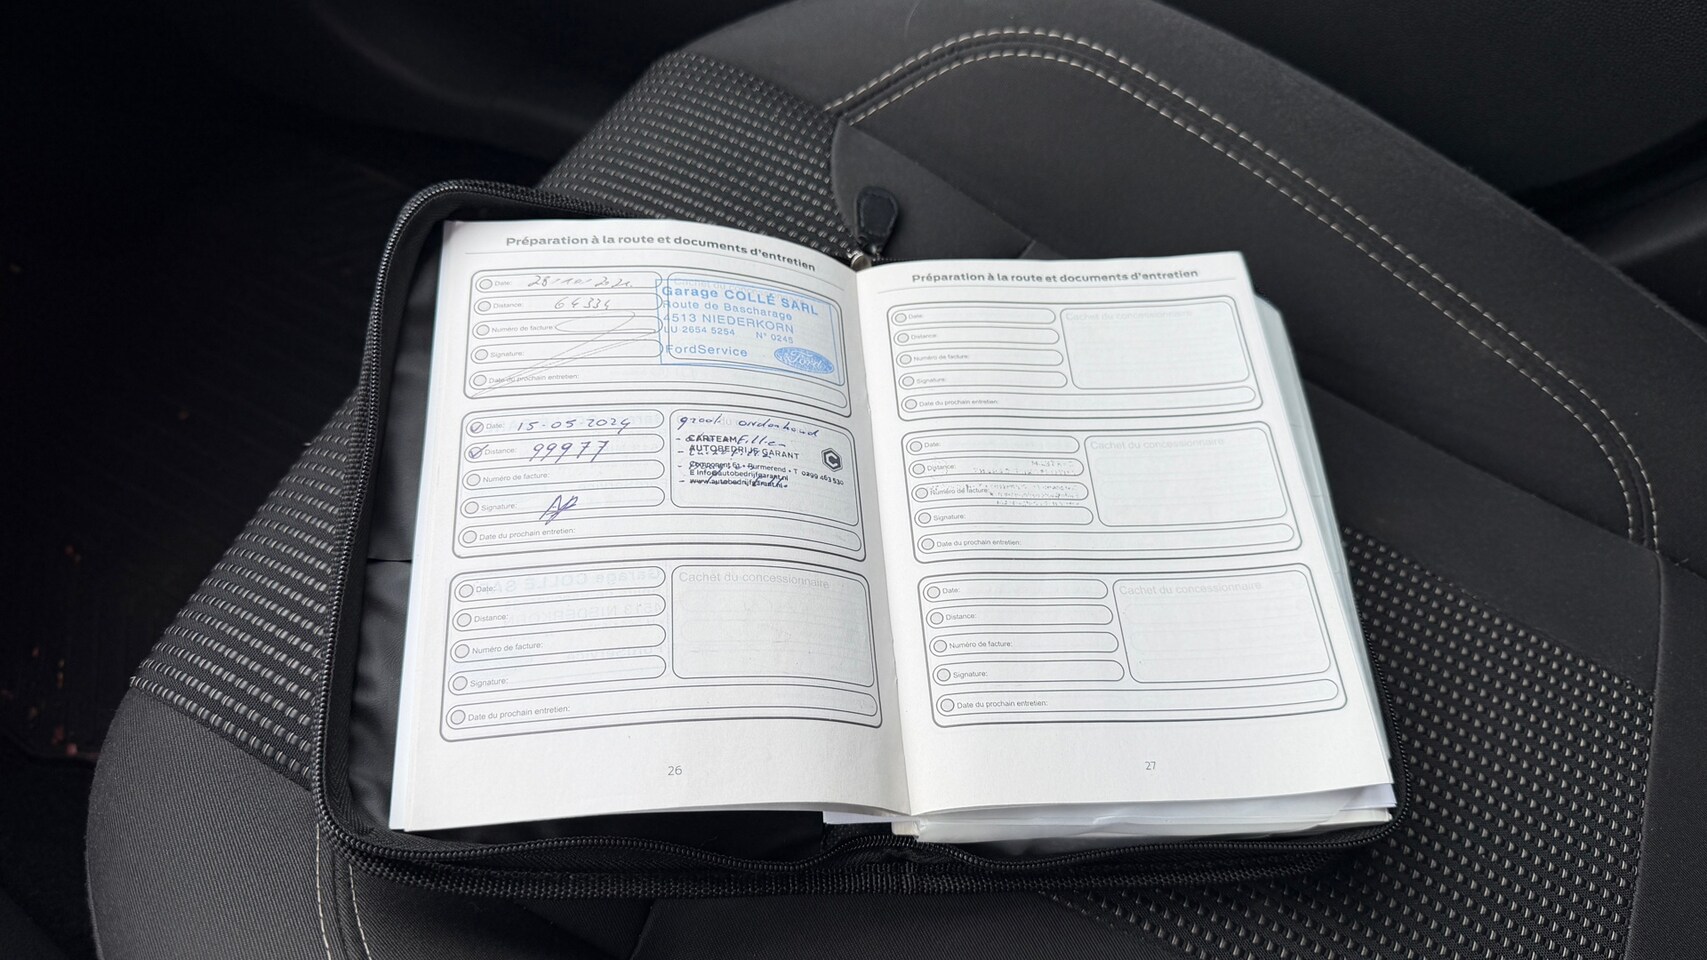 Préparation à la route et documents d'entretien
Date:
Distance: 64334
Numéro de facture:
Signature:
Date du prochain entretien:
Garage COLLÉ SARL
Route de Bascharage
4513 NIEDERKORN
LU 2654 5254 N° 0245
FordService
Ford
Date: 15-05-2024
Distance: 99977
Numéro de facture:
Signature:
Date du prochain entretien:
groot onderhoud
CARTEAM
AUTOBEDRIJF GARANT
Purmerend • T 0299 463 530
E info@autobedrijfgarant.nl
www.autobedrijfgarant.nl
Date:
Distance:
Numéro de facture:
Signature:
Date du prochain entretien:
Cachet du concessionnaire
26
Préparation à la route et documents d'entretien
Date:
Distance:
Numéro de facture:
Signature:
Date du prochain entretien:
Cachet du concessionnaire
Date:
Distance:
Numéro de facture:
Signature:
Date du prochain entretien:
Cachet du concessionnaire
Date:
Distance:
Numéro de facture:
Signature:
Date du prochain entretien:
Cachet du concessionnaire
27